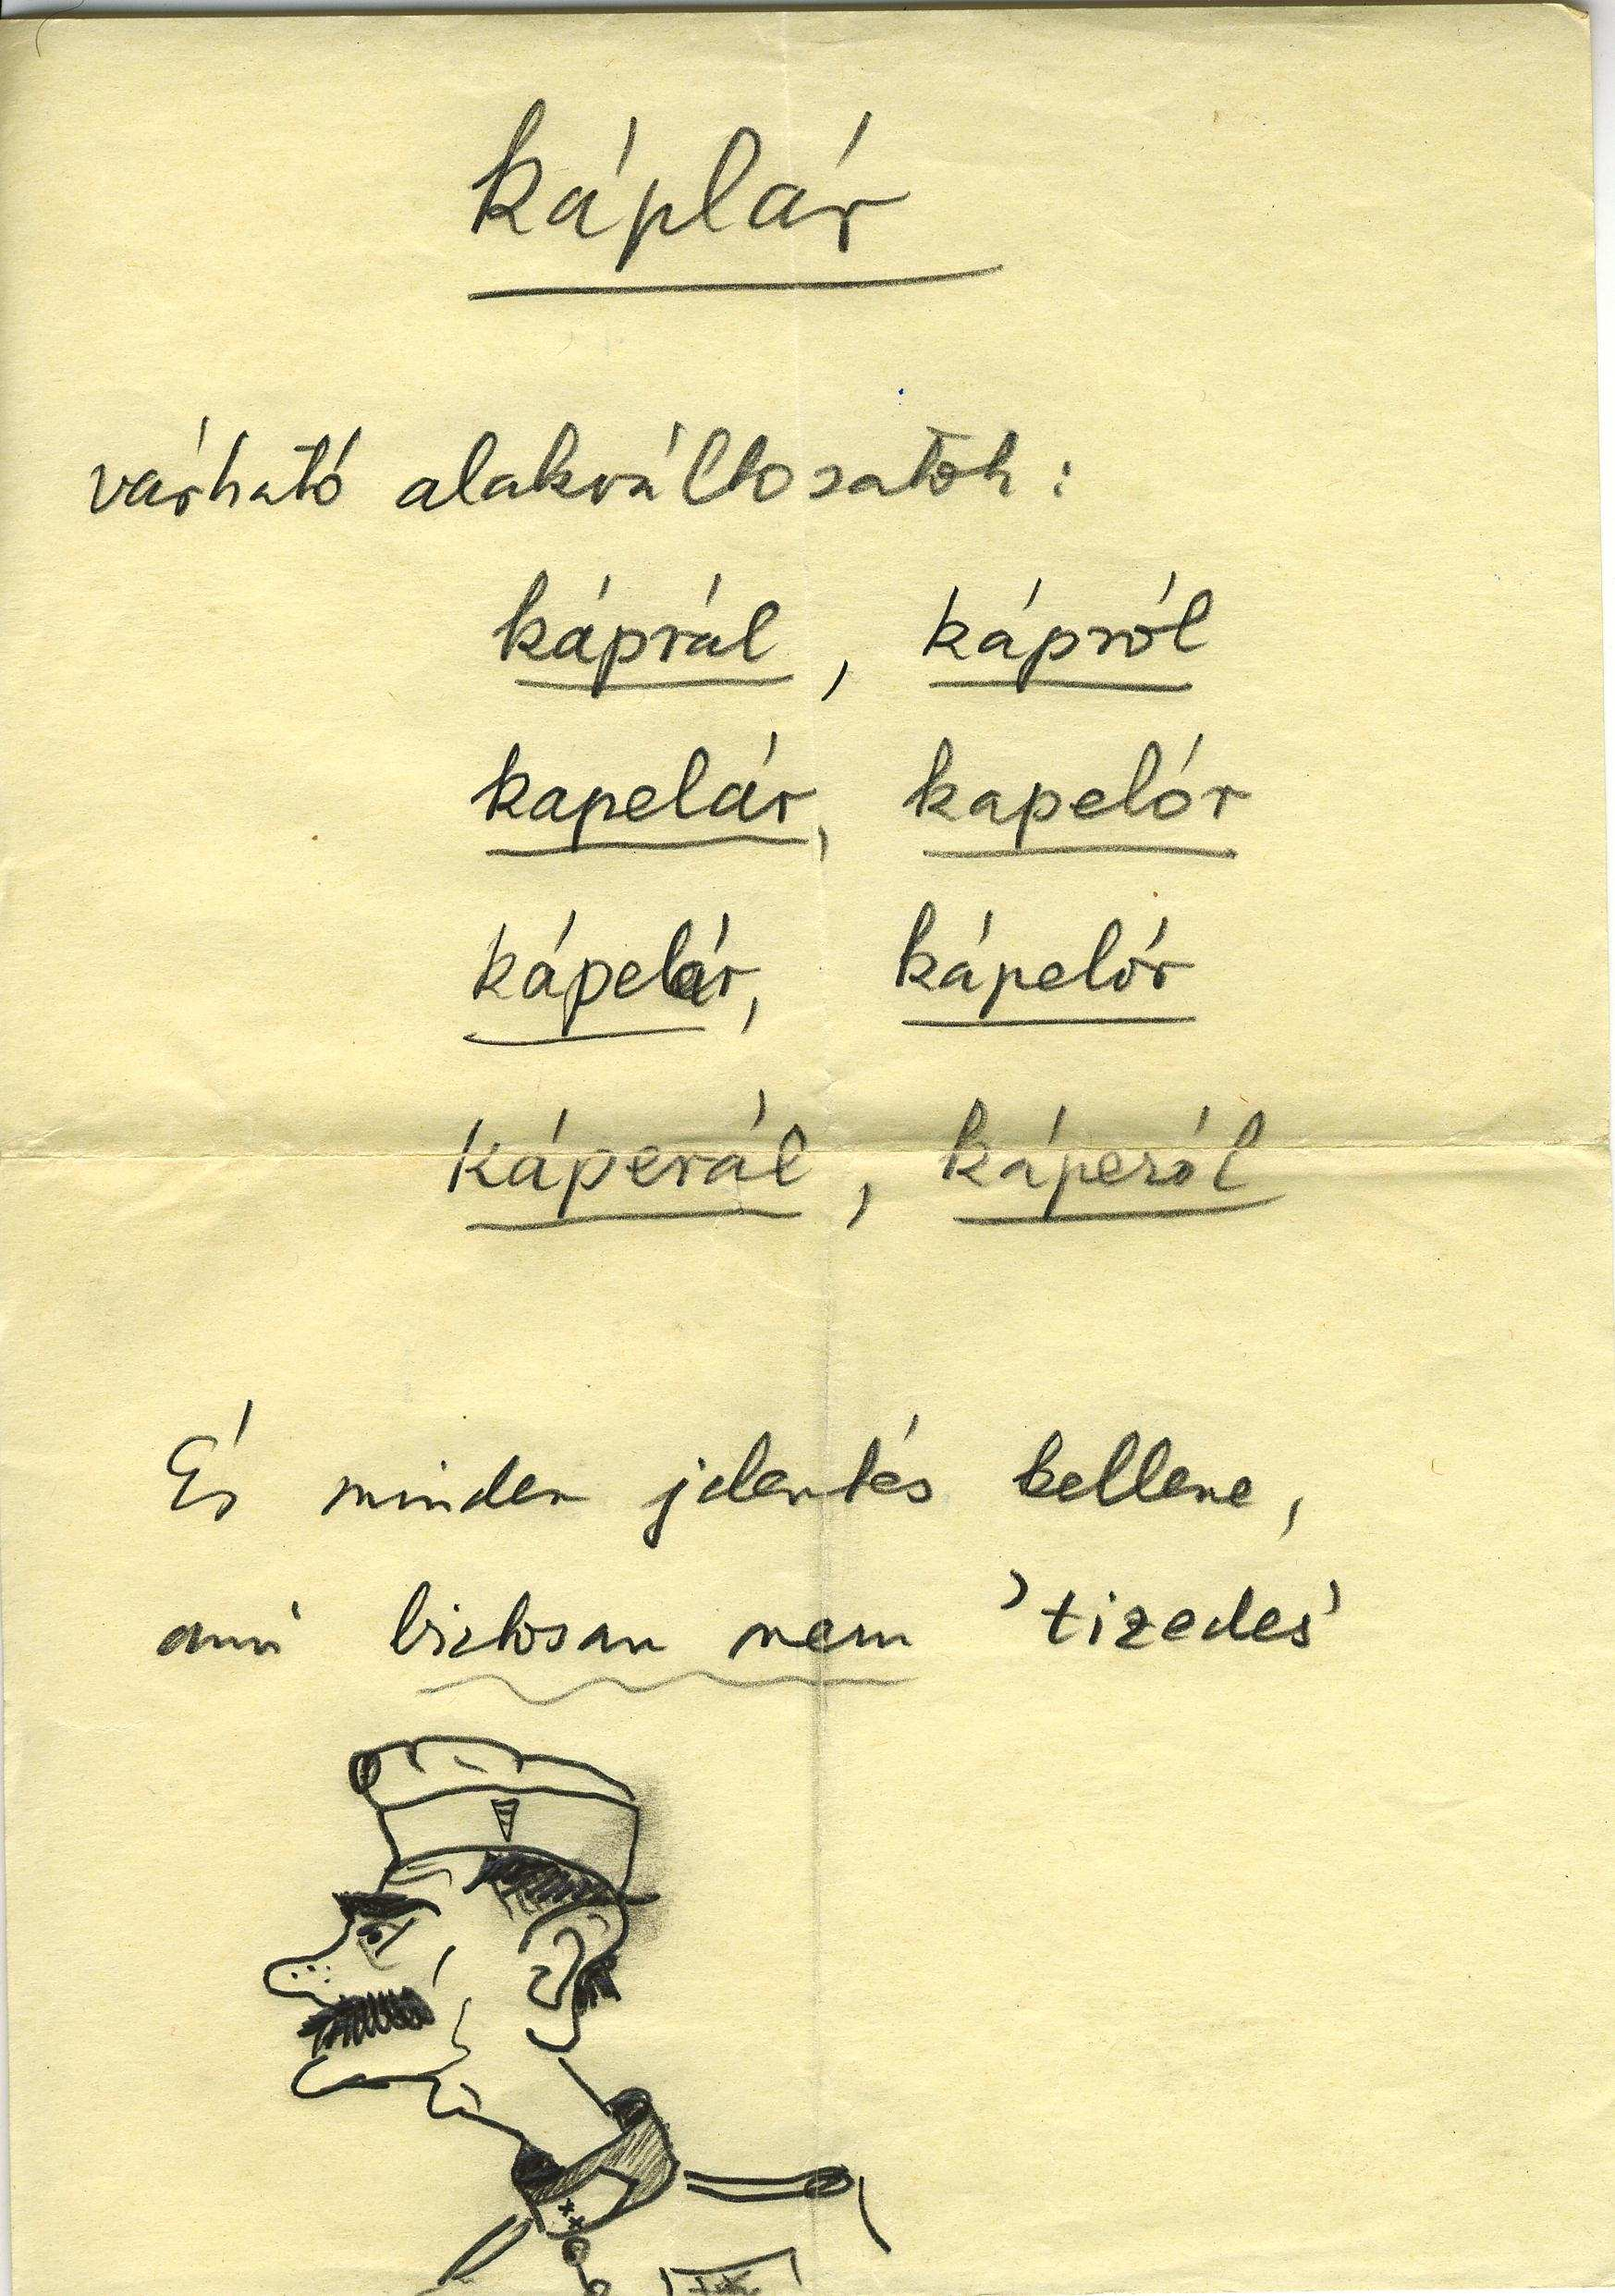 káplár
várható alakváltozatok:
káprál, kápról
kapelár, kapelór
kápelár, kápelór
káperál, káperól
És minden jelentés kellene,
ami biztosan nem 'tizedes'